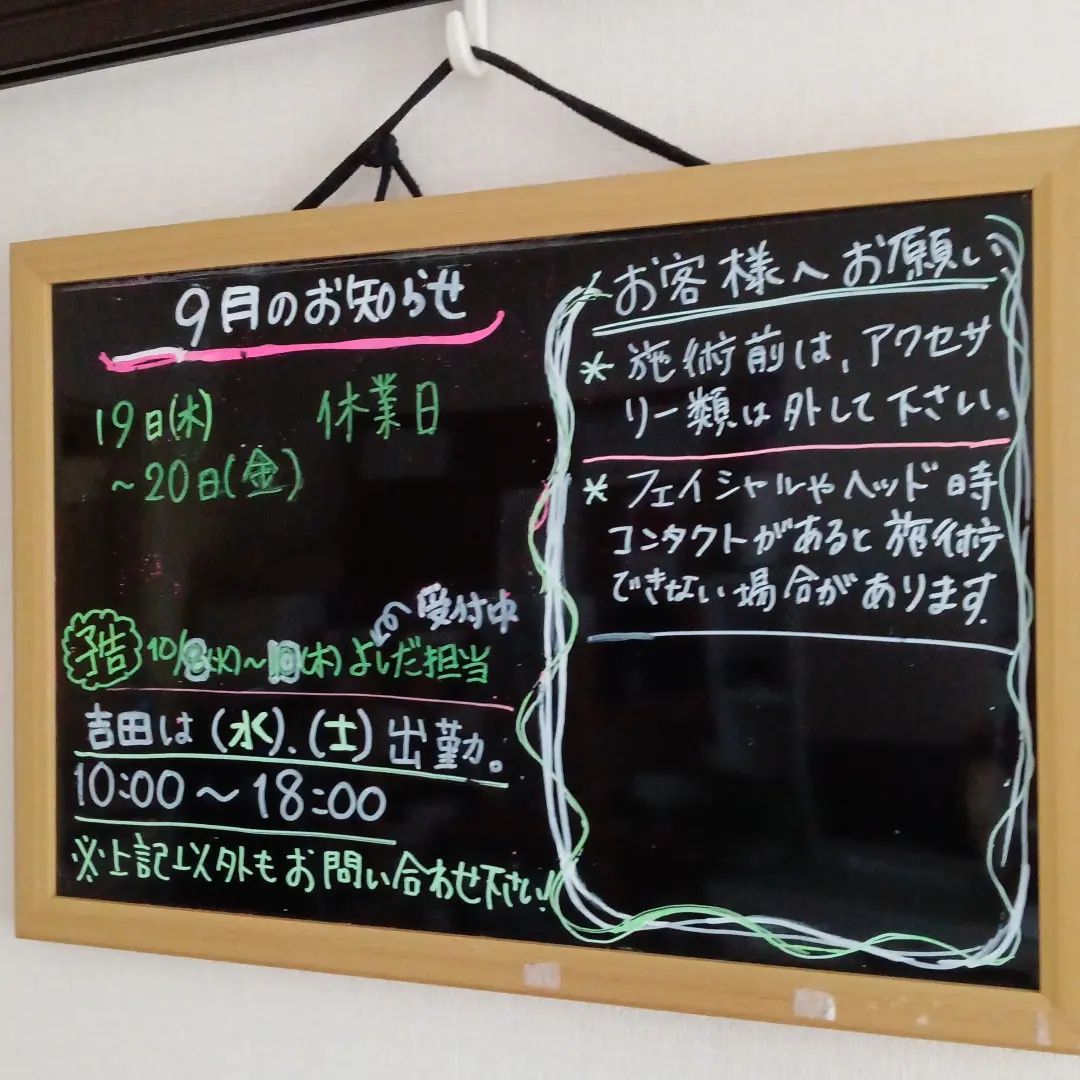 9月のお知らせ
19日(木) 休業日
～20日(金)
受付中
予告 10/8(水)～10(木) よしだ担当
吉田は(水).(土)出勤。
10:00～18:00
※上記以外もお問い合わせ下さい!
お客様へお願い
* 施術前は、アクセサ
リー類は外して下さい。
* フェイシャルやヘッド時
コンタクトがあると施術
できない場合があります.